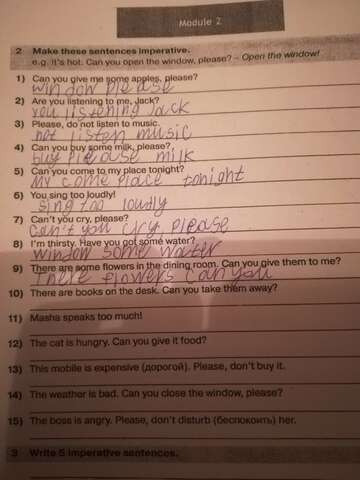 Module 2
2 Make these sentences imperative.
e.g. It's hot. Can you open the window, please? – Open the window!
1) Can you give me some apples, please?
window please
2) Are you listening to me, Jack?
you listening Jack
3) Please, do not listen to music.
not listen music
4) Can you buy some milk, please?
buy please milk
5) Can you come to my place tonight?
My come place tonight
6) You sing too loudly!
sing too loudly
7) Can't you cry, please?
Can't you cry, please
8) I'm thirsty. Have you got some water?
window some water
9) There are some flowers in the dining room. Can you give them to me?
There flowers can you
10) There are books on the desk. Can you take them away?
11) Masha speaks too much!
12) The cat is hungry. Can you give it food?
13) This mobile is expensive (дорогой). Please, don't buy it.
14) The weather is bad. Can you close the window, please?
15) The boss is angry. Please, don't disturb (беспокоить) her.
3 Write 5 imperative sentences.